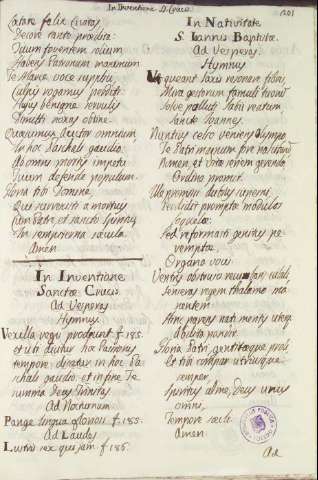 In Inventione S. Crucis
(201)
Catare felix Civitas
Decore tanto prædita:
Tuum foventem solium
Habens Patronum maximum
Te Marce voce supplici
Culpis rogamus perditi
Hujus benigne servulis
Dimitti noxas obtine.
Quæsumus Auctor omnium
In hoc Paschali gaudio,
Ab omni mortis impetu
Tuum defende populum.
Gloria tibi Domine,
Qui surrexisti a mortuis
Cum Patre, et sancto Spiritu
In sempiterna sæcula.
Amen.
In Inventione
Sanctæ Crucis
Ad Vesperas
Hymnus
Vexilla regis prodeunt f. 185.
et ubi dicitur hoc Passionis
tempore, dicatur in hoc Pa-
schali gaudio, et in fine Te
summa Deus Trinitas
Ad Nocturnum.
Pange lingua gloriosi f. 185.
Ad Laudes
Lustris sex qui jam f. 186.
In Nativitate
S. Ioannis Baptistæ.
Ad Vesperas.
Hymnus
Ut queant laxis resonare fibris,
Mira gestorum famuli tuorum
Solve polluti labii reatum
Sancte Joannes.
Nuntius celso veniens Olympo,
Te Patri magnum fore nasciturum
Nomen, et vitæ seriem gerendæ
Ordine promit.
Ille promissi dubius superni,
Perdidit promptæ modulos
loquelæ:
Sed reformasti genitus pe-
remptæ
Organa vocis
Ventris obstruso
Senseras regem thalamo ma-
nentem
Hinc parens nati meritis uterque
Abdita pandit.
Gloria Patri, genitæque proli
Et tibi compar utriusque
semper,
Spiritus alme, Deus unus
omni,
Tempore sæcli.
Amen.
Ad